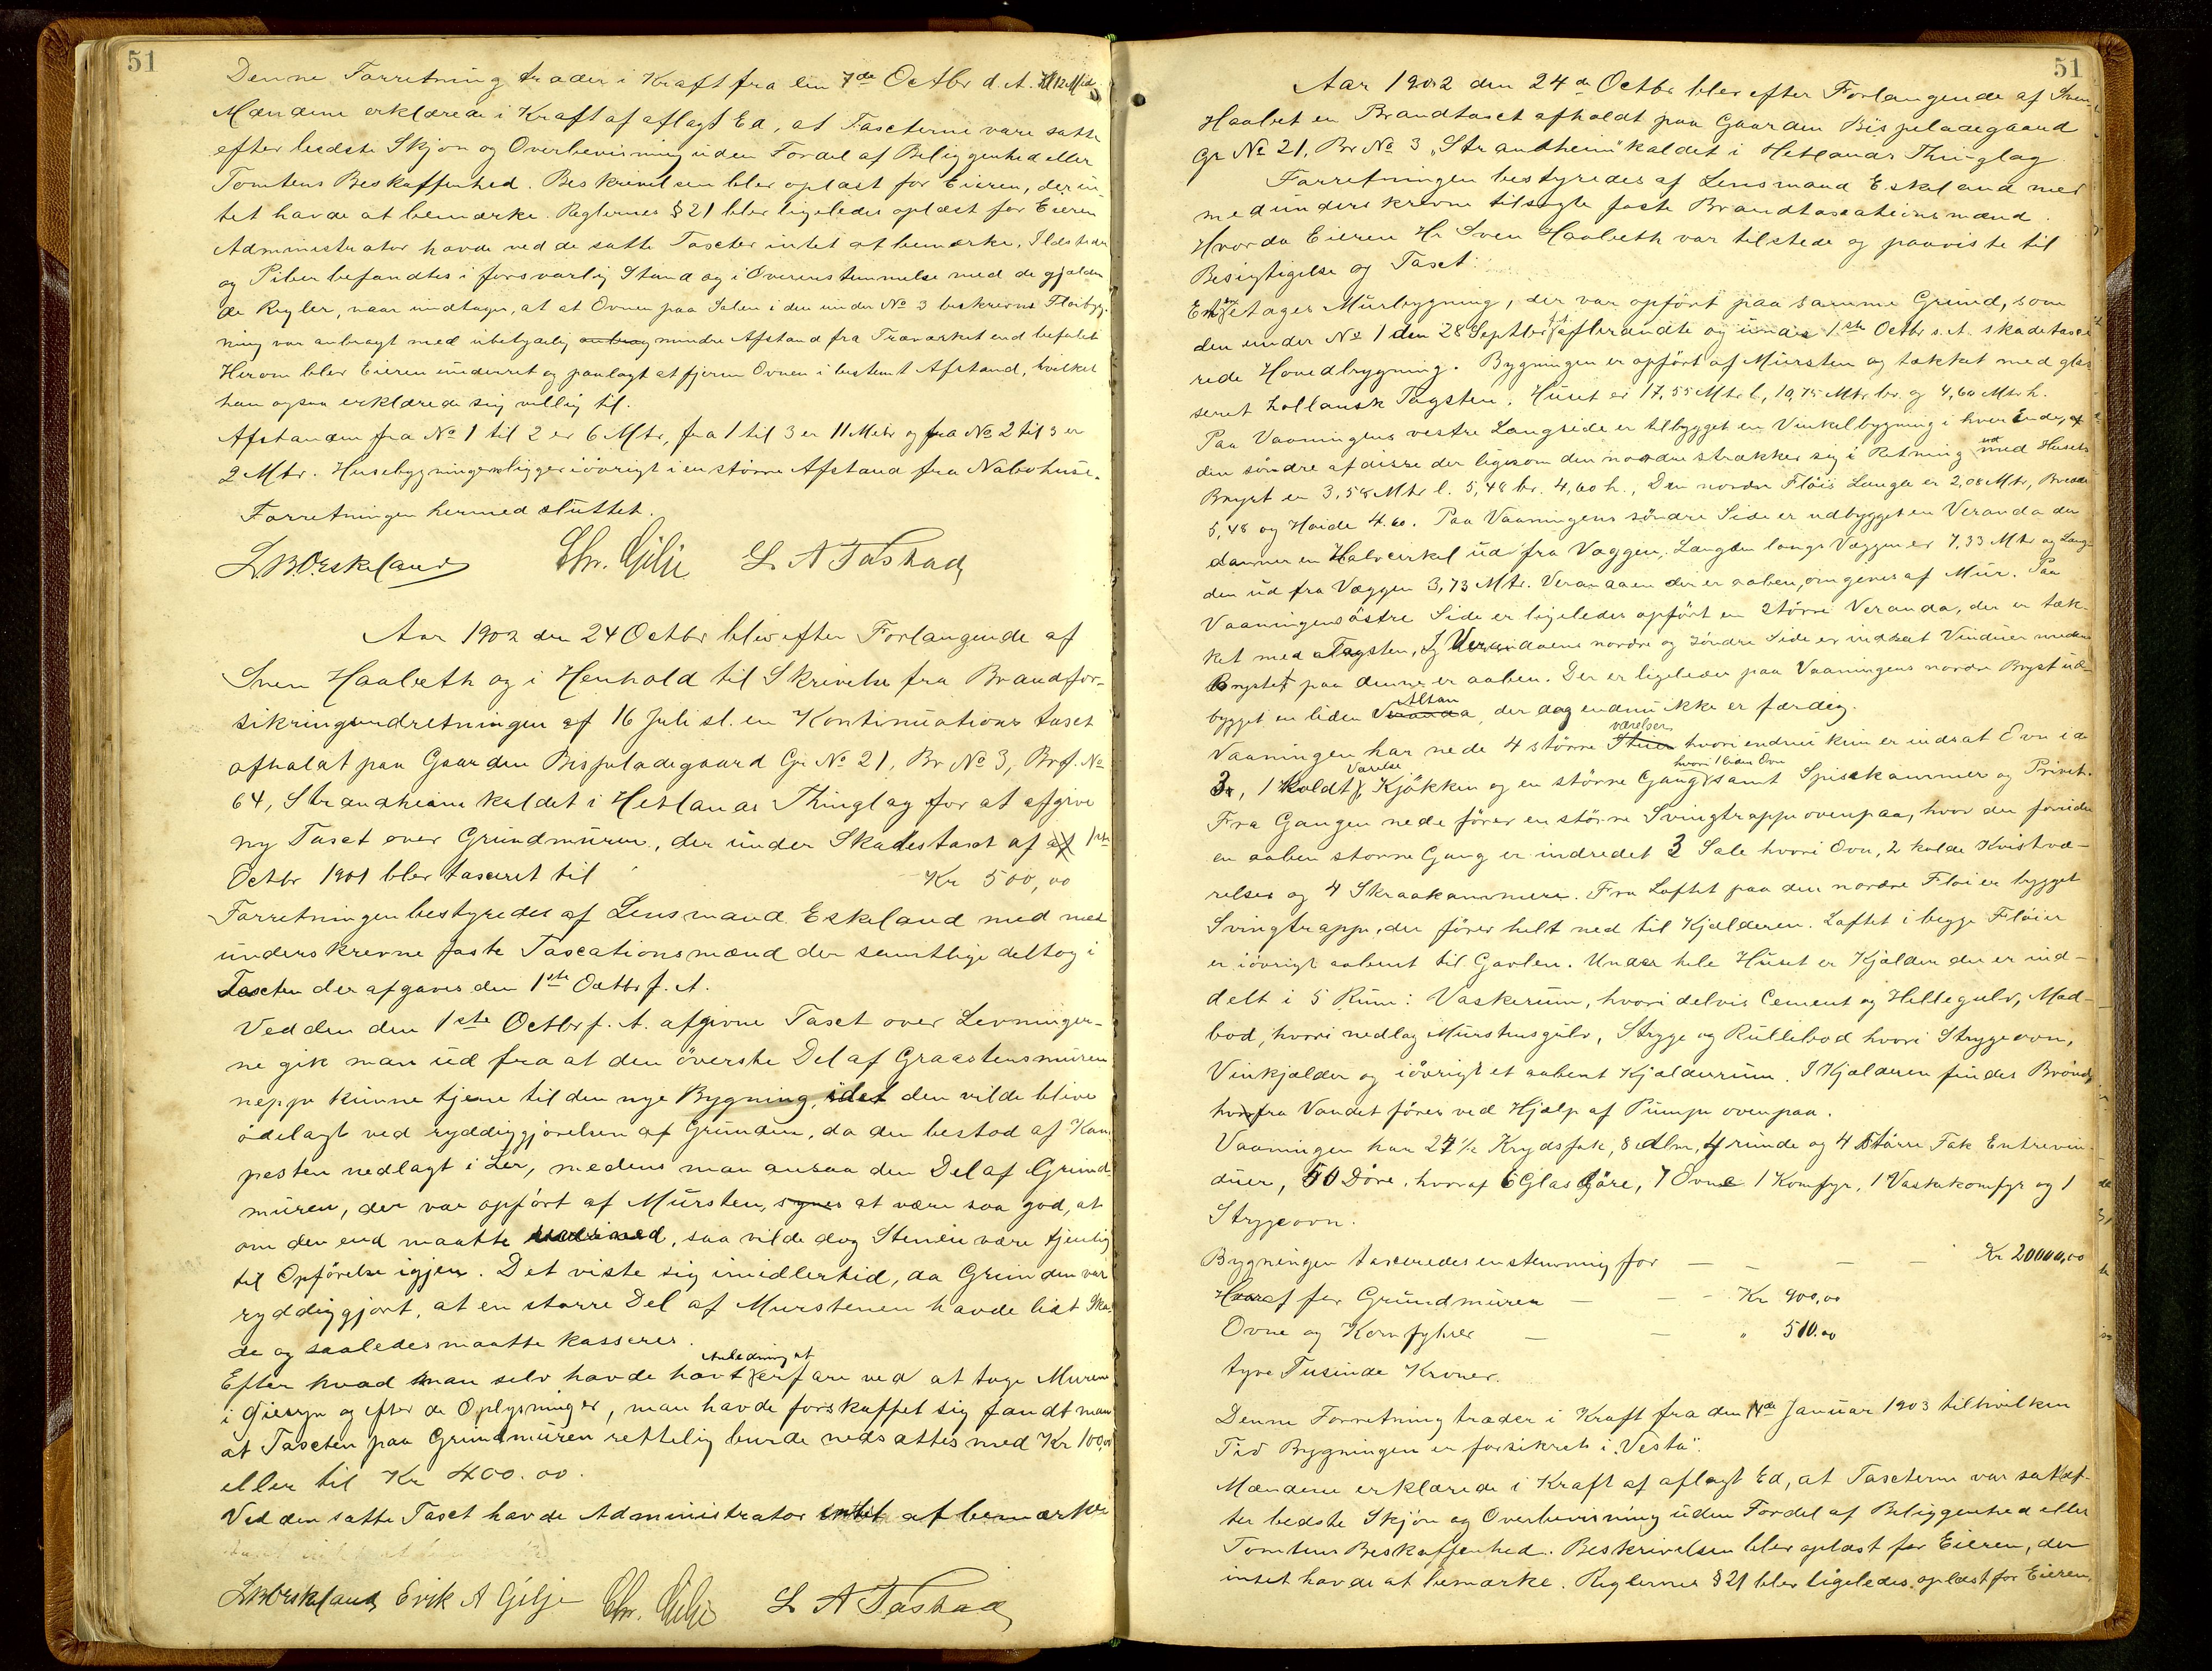 51
Denne Forretning træder i Kraft fra den 7de Octbr d. A. Kl 12 Mid
Mændene erklærede i Kraft af aflagt Ed, at Taxterne vare satte
efter bedste Skjøn og Overbevisning uden Fordel af Beliggenhed eller
Tomtens Beskaffenhed. Beskrivelsen blev oplæst for Eieren, der in
tet havde at bemærke. Reglernes § 21 blev ligeledes oplæst for Eieren
Administrator havde ved de satte Taxter intet at bemærke. Ildsteder
og Piber befandtes i forsvarlig Stand og i Overensstemmelse med de gjælden
de Regler, naar undtages, at at Ovnen paa Salen i den under No 3 beskrevne Fløibyg-
ning var anbragt med ubetydelig mindre Afstand fra Træværket end befalet
Herom blev Eieren underret og paalagt at fjerne Ovnen i bestemt Afstand, hvilket
han ogsaa erklærede sig villig til.
Afstanden fra No 1 til 2 er 6 Mtr, fra 1 til 3 er 11 Metr og fra No 2 til 3 er
2 Mtr. Husebygningen ligger iövrigt i en större Afstand fra Nabohuse.
Forretningen hermed sluttet.
L. B. Eskeland Chr. Gilje L A Tastad
Aar 1902 den 24 Octbr blev efter Forlangende af
Sven Haabeth og i Henhold til Skrivelse fra Brandfor-
sikringsindretningen af 16 Juli sl. en Kontinuations taxt
afholdt paa Gaarden Bispeladegaard Gr No 21, Br No 3, Brf. No
64, Strandheim kaldet i Hetlands Thinglag for at afgive
ny Taxt over Grundmuren, der under Skadestaxt af af 1ste
Octbr 1901 blev taxeret til Kr 500,00
Forretningen bestyredes af Lensmand Eskeland med med
underskrevne faste Taxationsmænd der samtlige deltog i
Taxten der afgaves den 1ste Octbr f. A.
Ved den den 1ste Octbr f. A. afgivne Taxt over Levninger-
ne gik man ud fra at den överste Del af Graastensmuren
neppe kunne tjene til den nye Bygning, idet den vilde blive
ödelagt ved ryddiggjörelsen af Grunden, da den bestod af Kam
pesten nedlagt i Ler, medens man ansaa den Del af Grund-
muren, der var opfört af Mursten, synes at være saa god, at
om den end maatte, saa vilde dog Stenene være tjenlig
til Opförelse igjen. Det viste sig imidlertid, da Grunden var
ryddiggjort, at en större Del af Murstenen havde lidt Ska-
de og saaledes maatte kasseres.
Efter hvad man selv havde havt Anledning at erfare ved at tage Muren
i Øiesyn og efter de Oplysninger, man havde forskaffet sig fandt man
at Taxten paa Grundmuren rettelig burde nedsættes med Kr 100,00
eller til Kr 400.00.
Ved den satte Taxt havde Administrator intet at bemærke
L. B. Eskeland Erik A Gilje Chr. Gilje L A Tastad
51
Aar 1902 den 24de Octbr blev efter Forlangende af Sven
Haabet en Brandtaxt afholdt paa Gaarden Bispeladegaard
Gr No 21, Br No 3 „Strandheim" kaldet i Hetlands Thinglag.
Forretningen bestyredes af Lensmand Eskeland med
medunderskrevne tilsagte faste Brandtaxationsmænd.
Hvorda Eieren Hr Sven Haabeth var tilstede og paaviste til
Besigtigelse og Taxt:
En Etages Murbygning, der var opfört paa samme Grund, som
den under No 1 den 28 Septbr afbrændte og under 1ste Octbr s. A. skadetaxe
rede Hovedbygning. Bygningen er opfört af Mursten og tækket med gla-
seret hollansk Tagsten. Huset er 17,55 Mtr l, 10,75 Mtr br. og 4,60 Mtr h.
Paa Vaaningens vestre Langside er tilbygget en Vinkelbygning i hver Ende, af
den söndre af disse der ligesom den nordre strækker sig i Retning ud med Husets
Bryst er 3,58 Mtr l. 5,48 br. 4,60 h., Den nordre Flöis Længde er 2,08 Mtr, Bredde
5,48 og Höide 4.60. Paa Vaaningens söndre Side er udbygget en Veranda der
danner en Halvcirkel ud fra Væggen. Længden langs Væggen er 7,33 Mtr og Læng-
den ud fra Væggen 3,73 Mtr. Verandaen der er aaben, omgives af Mur. Paa
Vaaningens östre Side er ligeledes opfört en Större Veranda, der er tæk-
ket med Tagsten, I Verandaens nordre og söndre Side er indsat Vinduer medens
Brystet paa denne er aaben. Der er ligeledes paa Vaaningens nordre Bryst ud-
bygget en liden Veranda Altan, der dog endnu ikke er færdig.
Vaaningen har nede 4 större Stuer værelser hvori endnu kun er indsat Ovn i de
3, 1 koldt Værelse, Kjökken og en större Gang hvori 1 liden Ovn samt Spisekammer og Privet.
Fra Gangen nede förer en större Svingtrappe ovenpaa, hvor der foruden
en aaben större Gang er indredet 3 Sale hvori Ovn, 2 kolde Kvistvæ-
relser og 4 Skraakammere. Fra Loftet paa den nordre Flöi er bygget
Svingtrappe, der förer helt ned til Kjælderen. Loftet i begge Flöier
er iövrigt aabent til Gavlen. Under hele Huset er Kjælder der er ind-
delt i 5 Rum: Vaskerum, hvori delvis Cement og Hellegulv, Mad-
bod, hvori nedlag Murstensgulv, Stryge og Rullebod hvori Strygeovn,
Vinkjælder og iövrigt et aabent Kjælderrum. I Kjælderen findes Brönd,
hvorfra Vandet föres ved Hjælp af Pumpe ovenpaa.
Vaaningen har 27 1/2 Krydsfak, 8 Alm, 4 runde og 4 Större Fak Entrevin-
duer, 50 Döre, hvoraf 6 Glas Döre, 7 Ovne 1 Komfyr, 1 Vaskekomfyr og 1
Strygeovn.
Bygningen taxeredes enstemmig for — — — — Kr 20000,00
Heraf for Grundmuren — — - Kr 900,00
Ovne og Komfyhrer — — " 510.00
tyve Tusinde Kroner.
Denne Forretning træder i Kraft fra den 14de Januar 1903 til hvilken
Tid Bygningen er forsikret i „Vesta".
Mændene erklærede i Kraft af aflagt Ed, at Taxterne var sat ef-
ter bedste Skjön og Overbevisning uden Fordel af Beliggenhed eller
Tomtens Beskaffenhed. Beskrivelsen blev oplæst for Eieren, der
intet havde at bemærke. Reglernes § 21 blev ligeledes oplæst for Eieren,